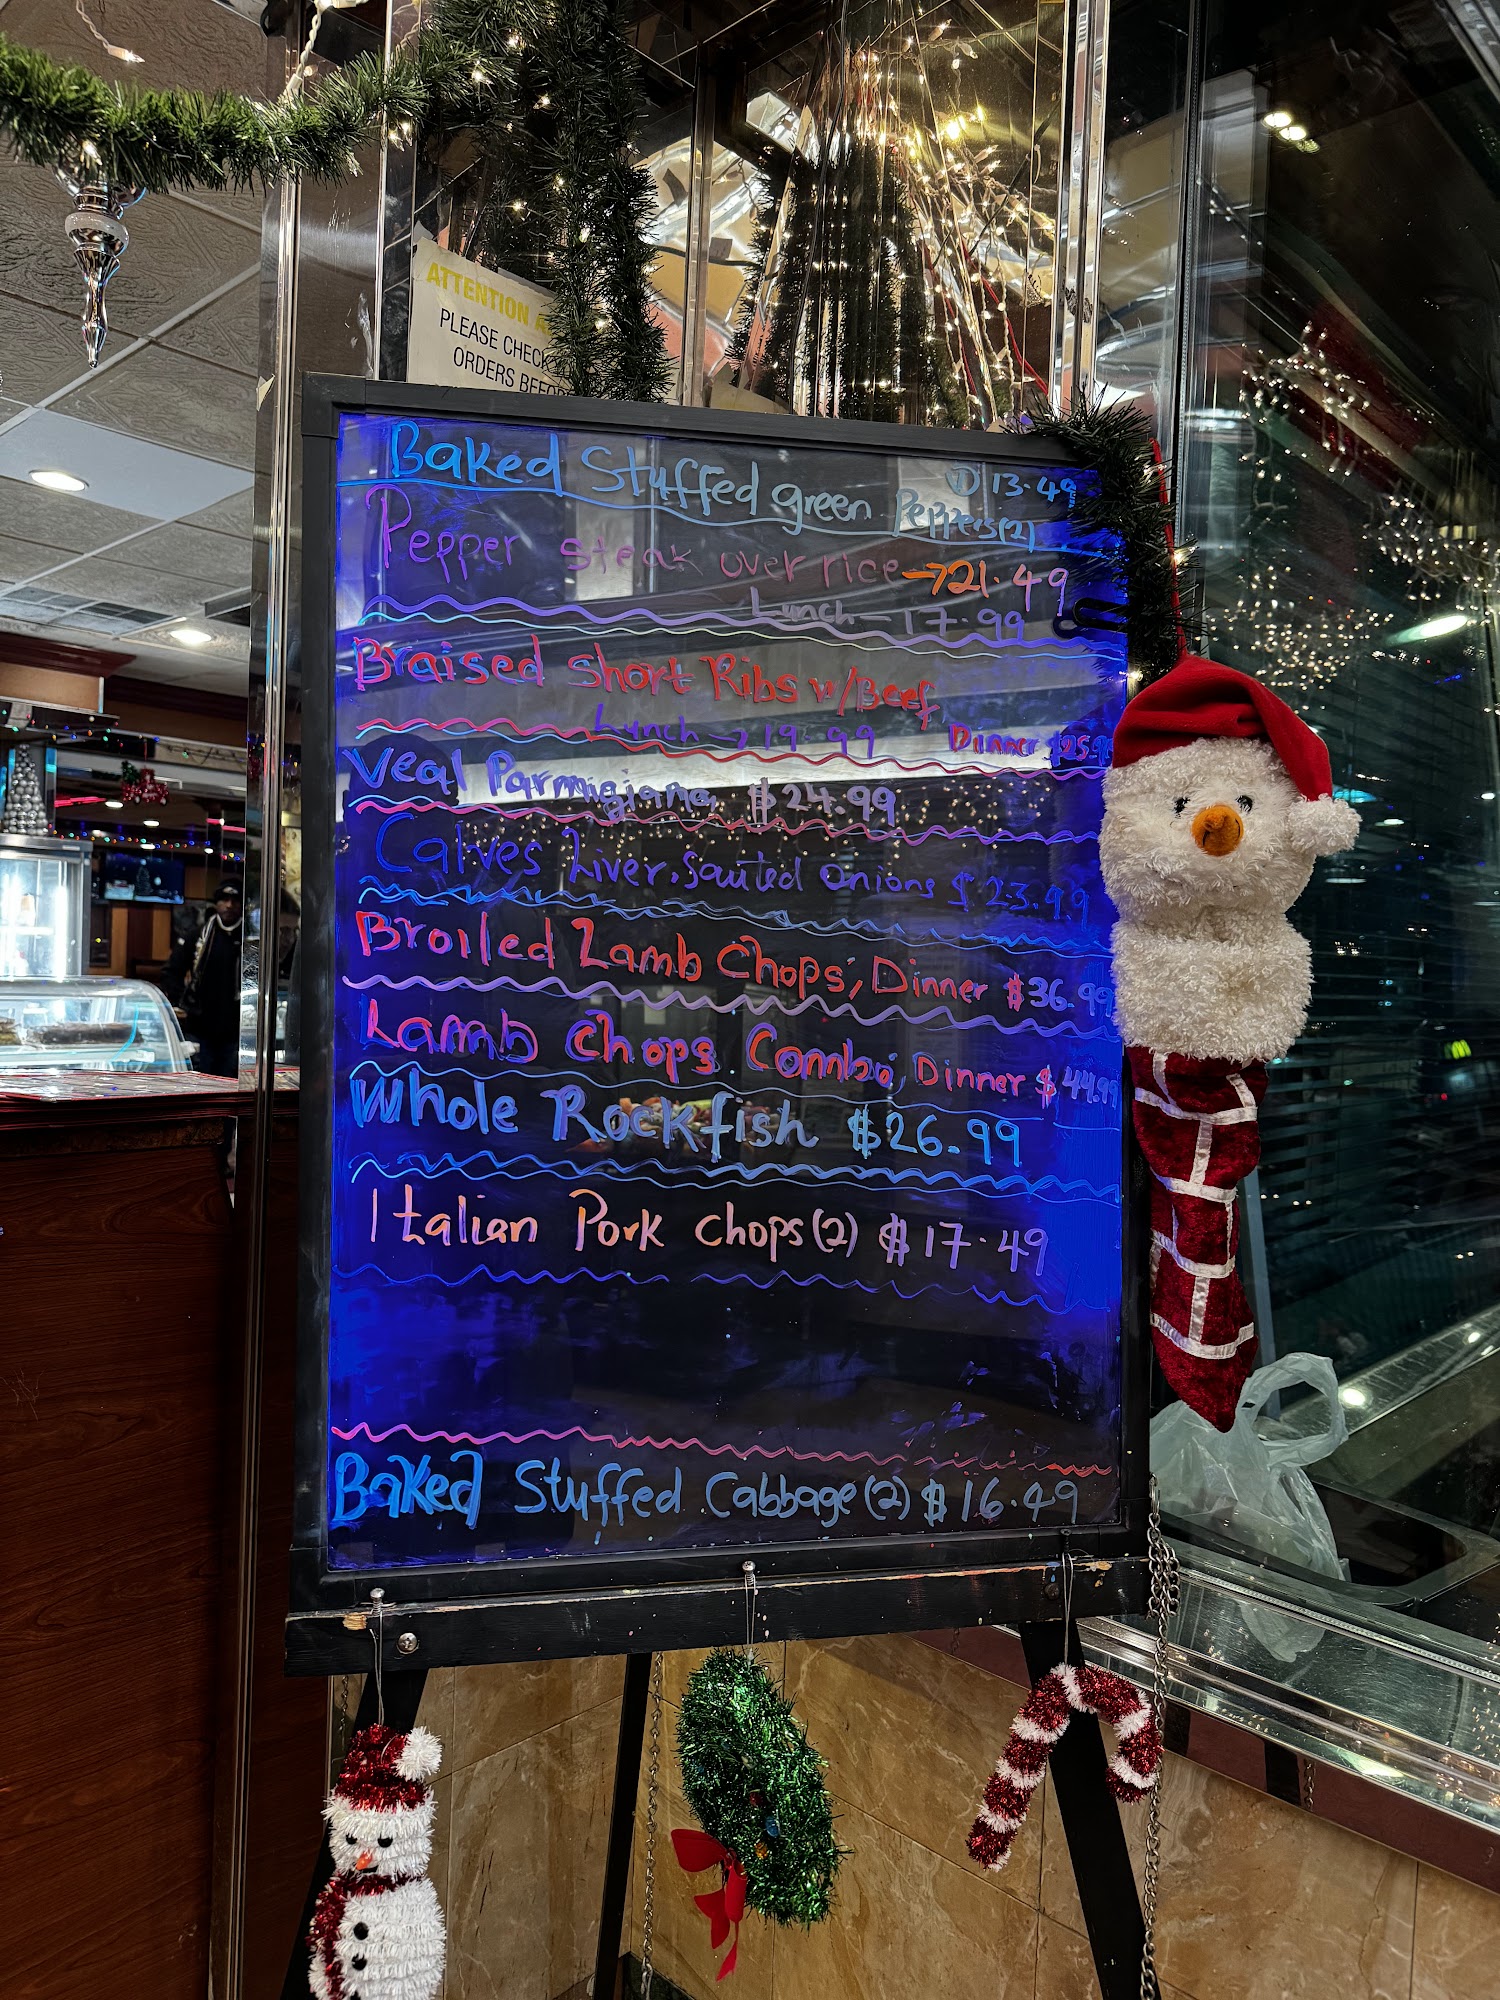 ATTENTION
PLEASE CHECK
ORDERS BEFO
Baked Stuffed green Peppers(2) D 13.49
Pepper steak over rice→21.49
Lunch - 17.99
Braised Short Ribs w/Beef
Lunch → 19.99 Dinner $25.9
Veal Parmigiana $24.99
Calves Liver, Sauted Onions $23.99
Broiled Lamb Chops, Dinner $36.99
Lamb Chops Combo, Dinner $44.99
Whole Rockfish $26.99
Italian Pork Chops(2) $17.49
Baked Stuffed Cabbage(2) $16.49